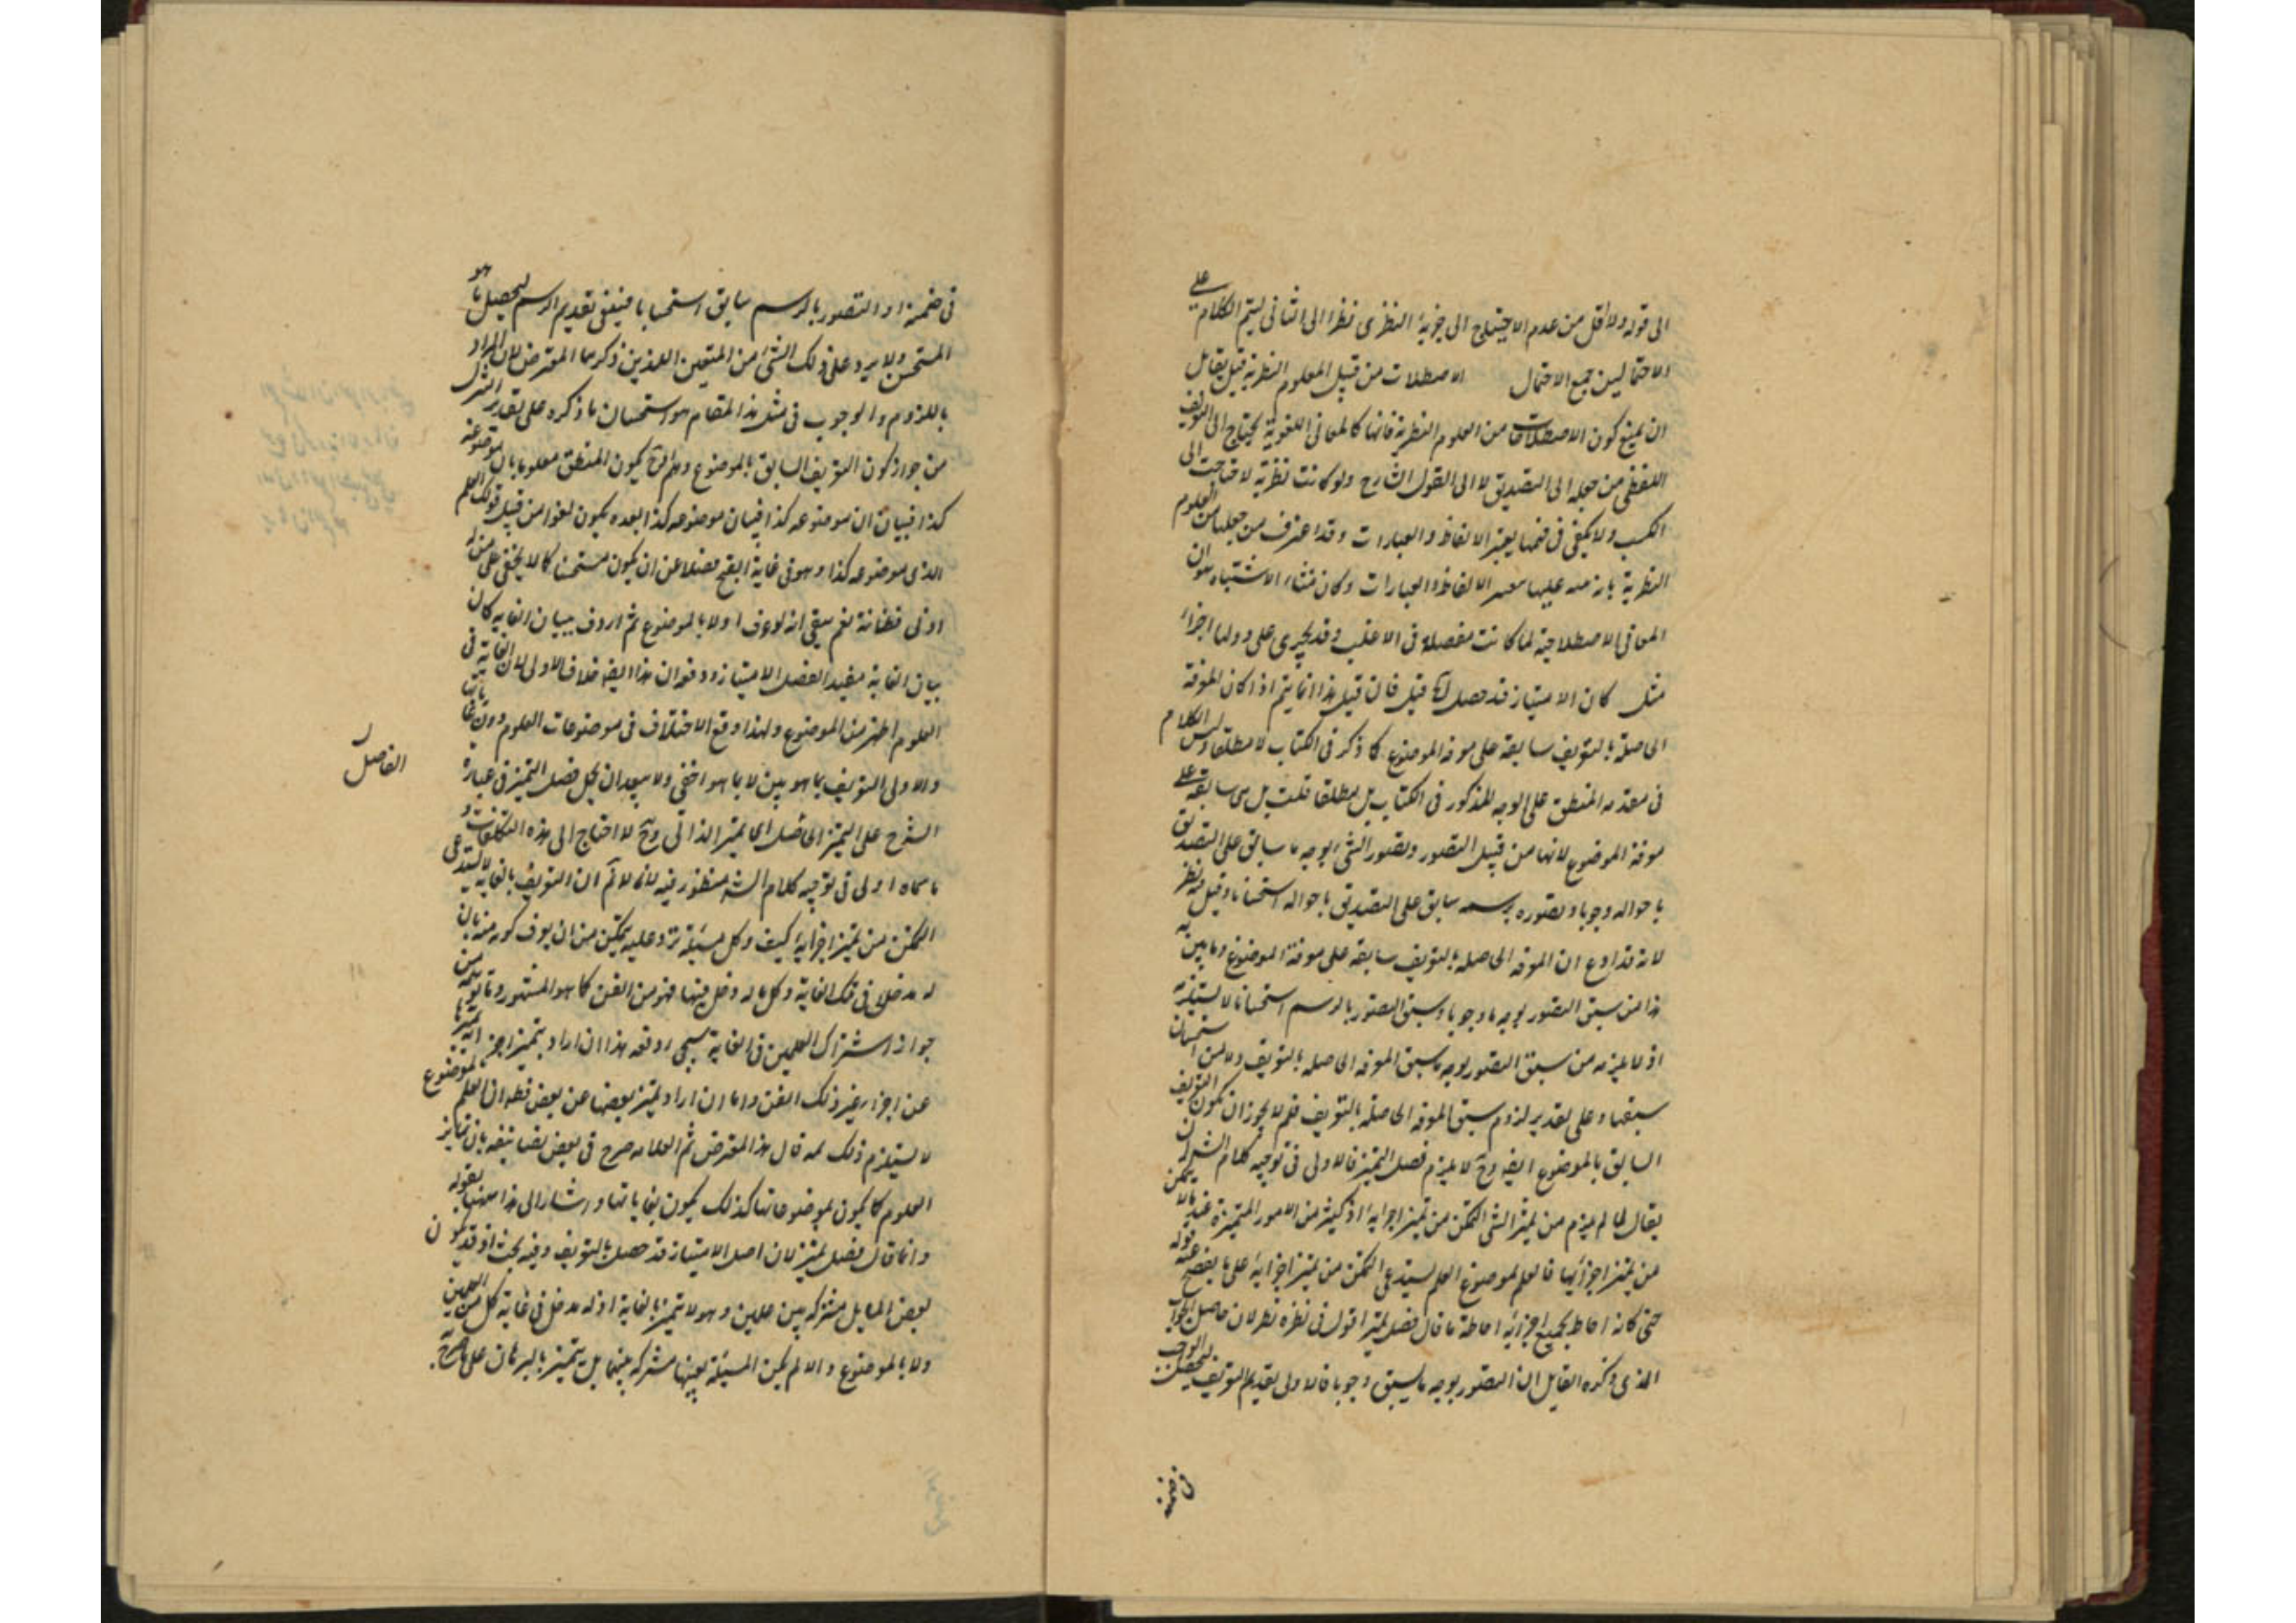 الى قوله ولا اقل من عدم الاحتياج الى جزئية النظرى نظرا الى الثانى ليتم الكلام على
الاحتمالين جميع الاحتمال الاصطلاحات من قبيل العلوم النظرية قيل يقابل
ان يمنع كون الاصطلاحات من العلوم النظرية فانها كالمعانى اللغوية يحتاج الى التعريف
اللفظى من جعله الى التصديق لا الى القول الشارح ولو كانت نظرية لاحتاجت الى
الكسب ولا يكفى فى فهمها تغيير الالفاظ والعبارات وقد اعترف من جعلها من العلوم
النظرية بان الالفاظ والعبارات وكان منشاء الاشتباه هو ان
المعانى الاصطلاحية لما كانت مفصلة فى الاغلب وقد يجرى على اجزاء
مثل كان الامتياز قد حصل قيل فان قيل هذا انما يتم اذا كان المعرفة
الحاصلة بالتعريف سابقة على معرفة الموضوع كما ذكر فى الكتاب لا مطلقا وليس الكلام
فى مقدمة المنطق على الوجه المذكور فى الكتاب بل مطلقا قلت بل هى سابقة على
معرفة الموضوع لانها من قبيل التصور وتصور الشئ بوجه ما سابق على التصديق
باحواله وجوبا وتصوره برسمه سابق على التصديق باحواله استحسانا وقيل فيه نظر
لانه قد ادع ان المعرفة الحاصلة بالتعريف سابقة على معرفة الموضوع وما بين به
هذا من سبق التصور بوجه ما وجوبا وسبق التصور بالرسم استحسانا لا يستلزمه
اذ لا يلزم من سبق التصور بوجه ما سبق المعرفة الحاصلة بالتعريف ولا من استحسان
سبقها وعلى تقدير لزوم سبق المعرفة الحاصلة بالتعريف فلم لا يجوز ان يكون التعريف
السابق بالموضوع ايضا وح لا يلزم فصل التميز فالاولى فى توجيه كلام الشرح ان
يقال لما لم يلزم من تميز الشئ التمكن من تميز اجزائه اذ كثير من الامور المتميزة عندنا لا يمكن
من تميز اجزائها فالعلم بموضوع العلم يستدعى التمكن من تميز اجزائه على ما يفصح عنه قوله
حتى كانه احاط بجميع اجزائه احاطة ما قال فصل تميز اقول فى نظره نظر لان حاصل الجواب
الذى ذكره القايل ان التصور بوجه ما يسبق وجوبا فالاولى تقديم التعريف ليحصل الواجب
فى ضمنه
فى ضمنه او التصور بالرسم سابق استحسانا فينبغى تقديم الرسم ليحصل ما هو
المستحسن ولا يرد على ذلك الشئ من المنعين اللذين ذكرهما المعترض لان المراد
باللزوم والوجوب فى مثل هذا المقام هو استحسان ما ذكره على تقدير
من جواز كون التعريف السابق بالموضوع يكون المنطق معلوما بان موضوعه
كذا فبيان ان موضوعه كذا فبيان موضوعه كذا بعده يكون لغوا من قبيل قولك العلم
الذى موضوعه كذا وهو فى غاية القبح فضلا عن ان يكون مستحسنا كما لا يخفى على من له
ادنى فطانة نعم بقى انه لو عرف اولا بالموضوع ثم اردف ببيان الغاية كان
بيان الغاية مفيدا لفضل الامتياز ودفعه ان هذا ايضا خلاف الاولى لان الغاية فى
العلوم اظهر من الموضوع ولهذا وقع الاختلاف فى موضوعات العلوم دون غاياتها
والاولى التعريف بما هو بين لا بما هو اخفى ولا يبعد ان يحمل فضل التميز فى عبارة
الفاضل
الشرح على التميز الفاضل اى التميز الذاتى وح لا احتاج الى هذه التكلفات و
ما سماه اولى فى توجيه كلام الش منظور فيه لانا لا نم ان التعريف بالغاية لا يستدعى
التمكن من تميز اجزائه كيف وكل مسئلة ترد عليه يتمكن من ان يعرف كونه منه بان
له مدخلا فى تلك الغاية وكل ما له دخل فيها فهو من الفن كما هو المشهور وما توهم من
جواز اشتراك العلمين فى الغاية سيجى دفعه هذا ان اراد بتميز اجزائه تميزها
عن اجزاء غير ذلك الفن واما ان اراد تميز بعضها عن بعض فظ ان العلم بالموضوع
لا يستلزم ذلك قال هذا المعترض ثم العلامه صرح فى بعض تصانيفه بان تمايز
العلوم كما يكون بموضوعاتها كذلك يكون بغاياتها واشار الى هذا ههنا بقوله
وانما قال فضل تميز لان اصل الامتياز قد حصل بالتعريف وفيه بحث اذ قد يكون
بعض المسايل مشتركة بين علمين وهو لا يتميز بالغاية اذ له مدخل فى غاية كل من العلمين
ولا بالموضوع والا لم يكن المسئلة بعينها مشتركة بينهما بل يتميز بالبرهان على ما صرح